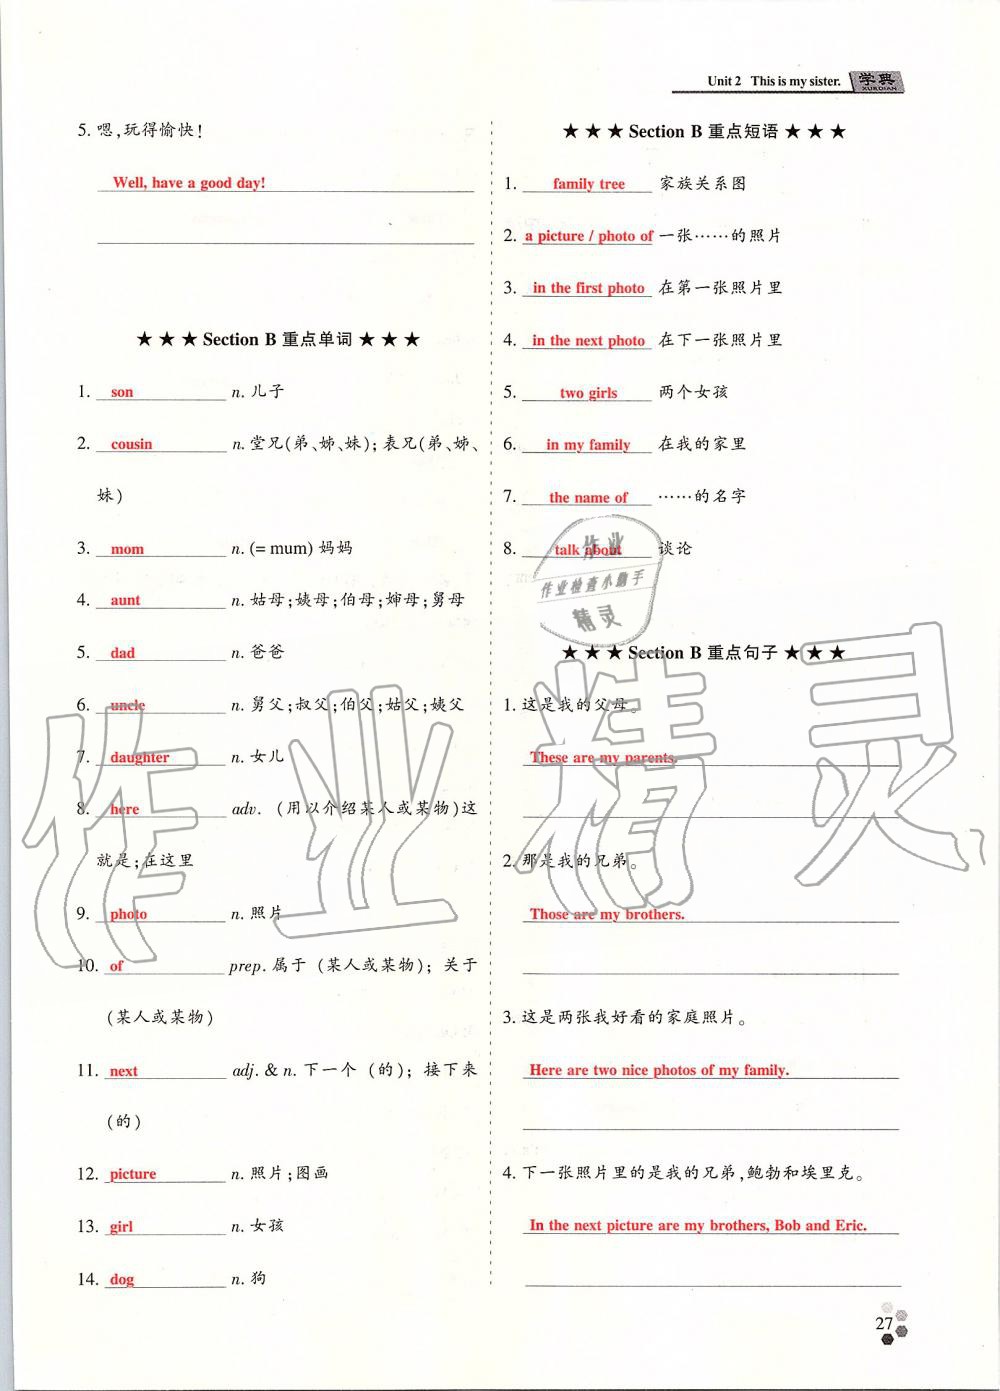 Unit 2 This is my sister. 学典
XUEDIAN
5. 嗯,玩得愉快!
Well, have a good day!
★ ★ ★ Section B 重点单词 ★ ★ ★
1. son n. 儿子
2. cousin n. 堂兄(弟、姊、妹);表兄(弟、姊、
妹)
3. mom n. (= mum) 妈妈
4. aunt n. 姑母;姨母;伯母;婶母;舅母
5. dad n. 爸爸
6. uncle n. 舅父;叔父;伯父;姑父;姨父
7. daughter n. 女儿
8. here adv. (用以介绍某人或某物)这
就是;在这里
9. photo n. 照片
10. of prep. 属于(某人或某物);关于
(某人或某物)
11. next adj. & n. 下一个(的);接下来
(的)
12. picture n. 照片;图画
13. girl n. 女孩
14. dog n. 狗
★ ★ ★ Section B 重点短语 ★ ★ ★
1. family tree 家族关系图
2. a picture / photo of 一张……的照片
3. in the first photo 在第一张照片里
4. in the next photo 在下一张照片里
5. two girls 两个女孩
6. in my family 在我的家里
7. the name of ……的名字
8. talk about 谈论
作业
作业检查小助手
精灵
★ ★ ★ Section B 重点句子 ★ ★ ★
1. 这是我的父母。
These are my parents.
2. 那是我的兄弟。
Those are my brothers.
3. 这是两张我好看的家庭照片。
Here are two nice photos of my family.
4. 下一张照片里的是我的兄弟,鲍勃和埃里克。
In the next picture are my brothers, Bob and Eric.
作业精灵
27